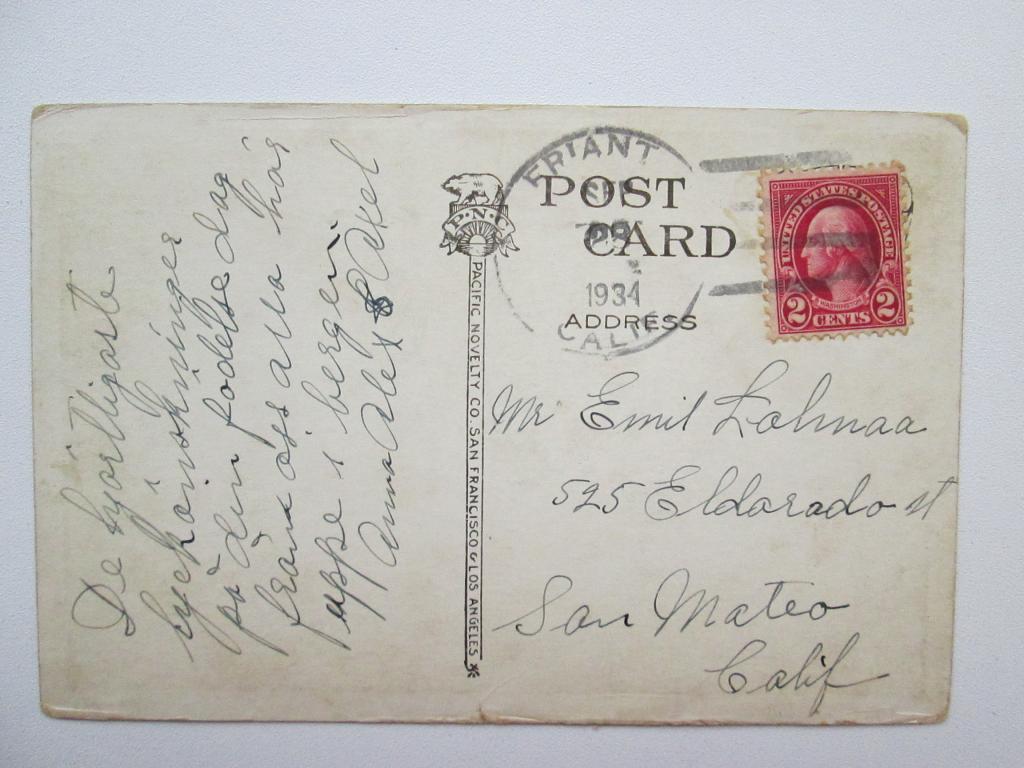 De hjärtligaste
lyckönskningar
på din födelsedag
från oss alla här
uppe i bergen.
Anna Alex & Axel
P.N.C.
PACIFIC NOVELTY CO. SAN FRANCISCO & LOS ANGELES
POST
CARD
ADDRESS
FRIANT
1934
CALIF
UNITED STATES POSTAGE
WASHINGTON
2 CENTS 2
Mr Emil
525 Eldorado st
San Mateo
Calif